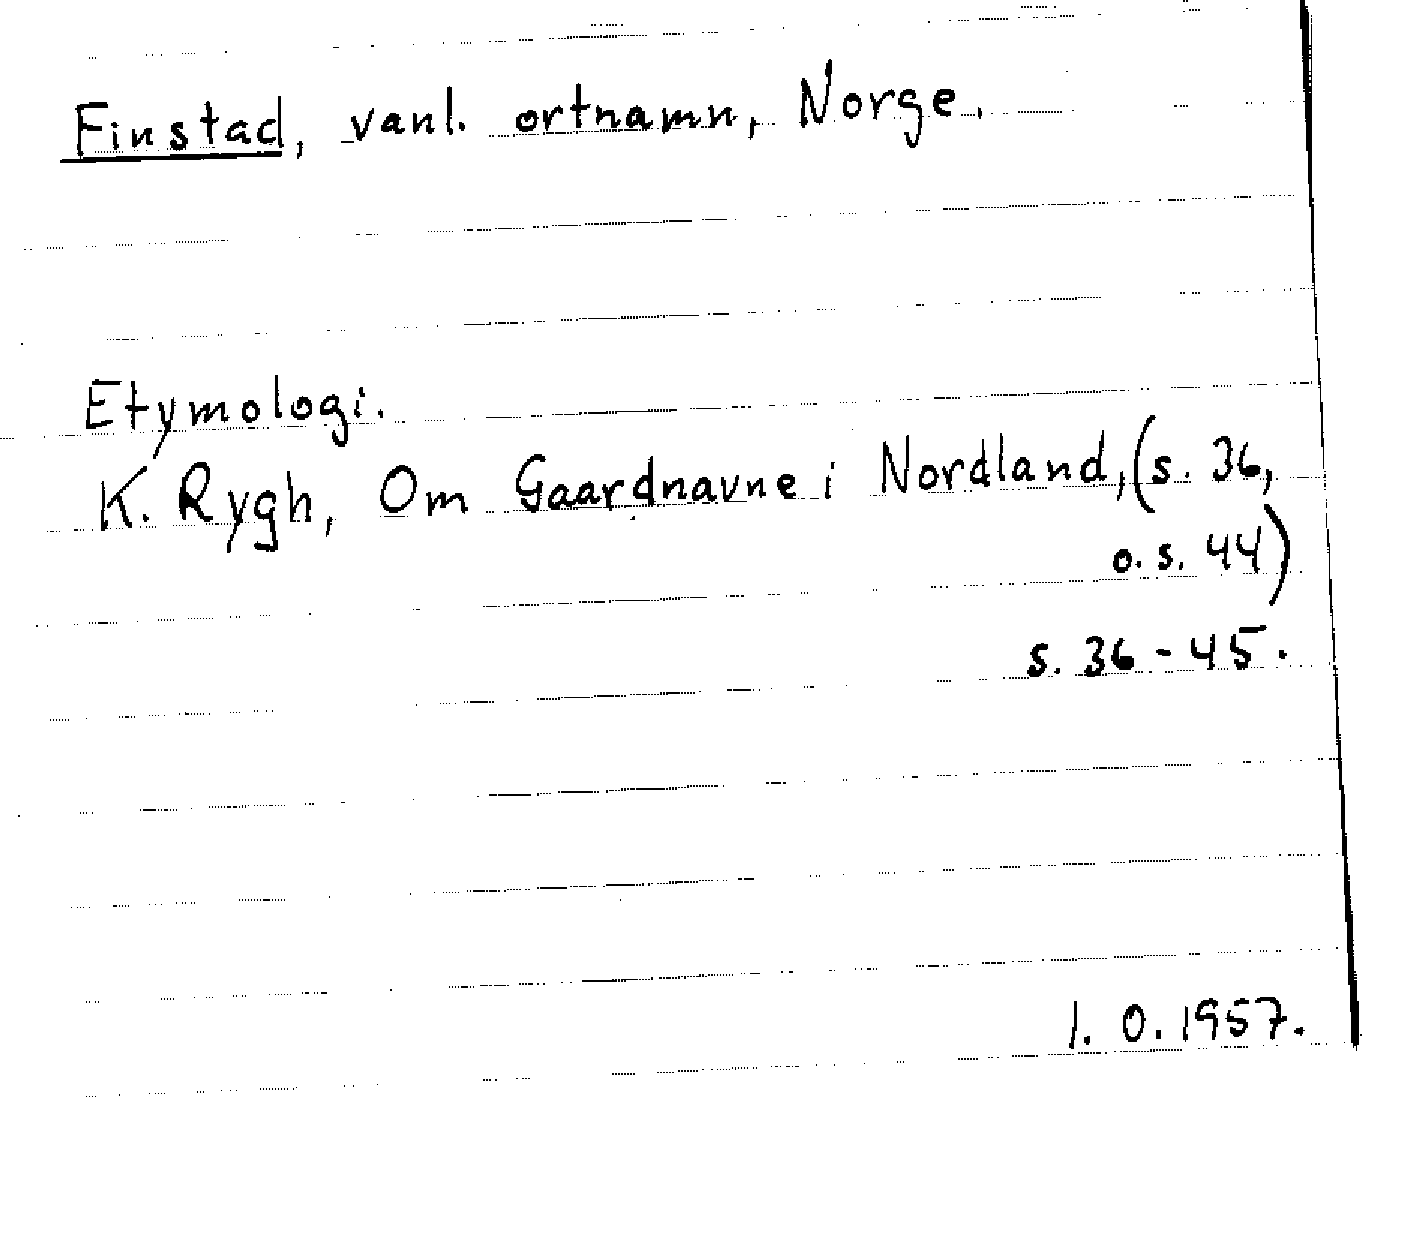 Finstad, vanl. ortnamn, Norge.
Etymologi.
K. Rygh, Om Gaardnavne i Nordland, (s. 36,
o. s. 44)
s. 36 - 45.
1. O. 1957.